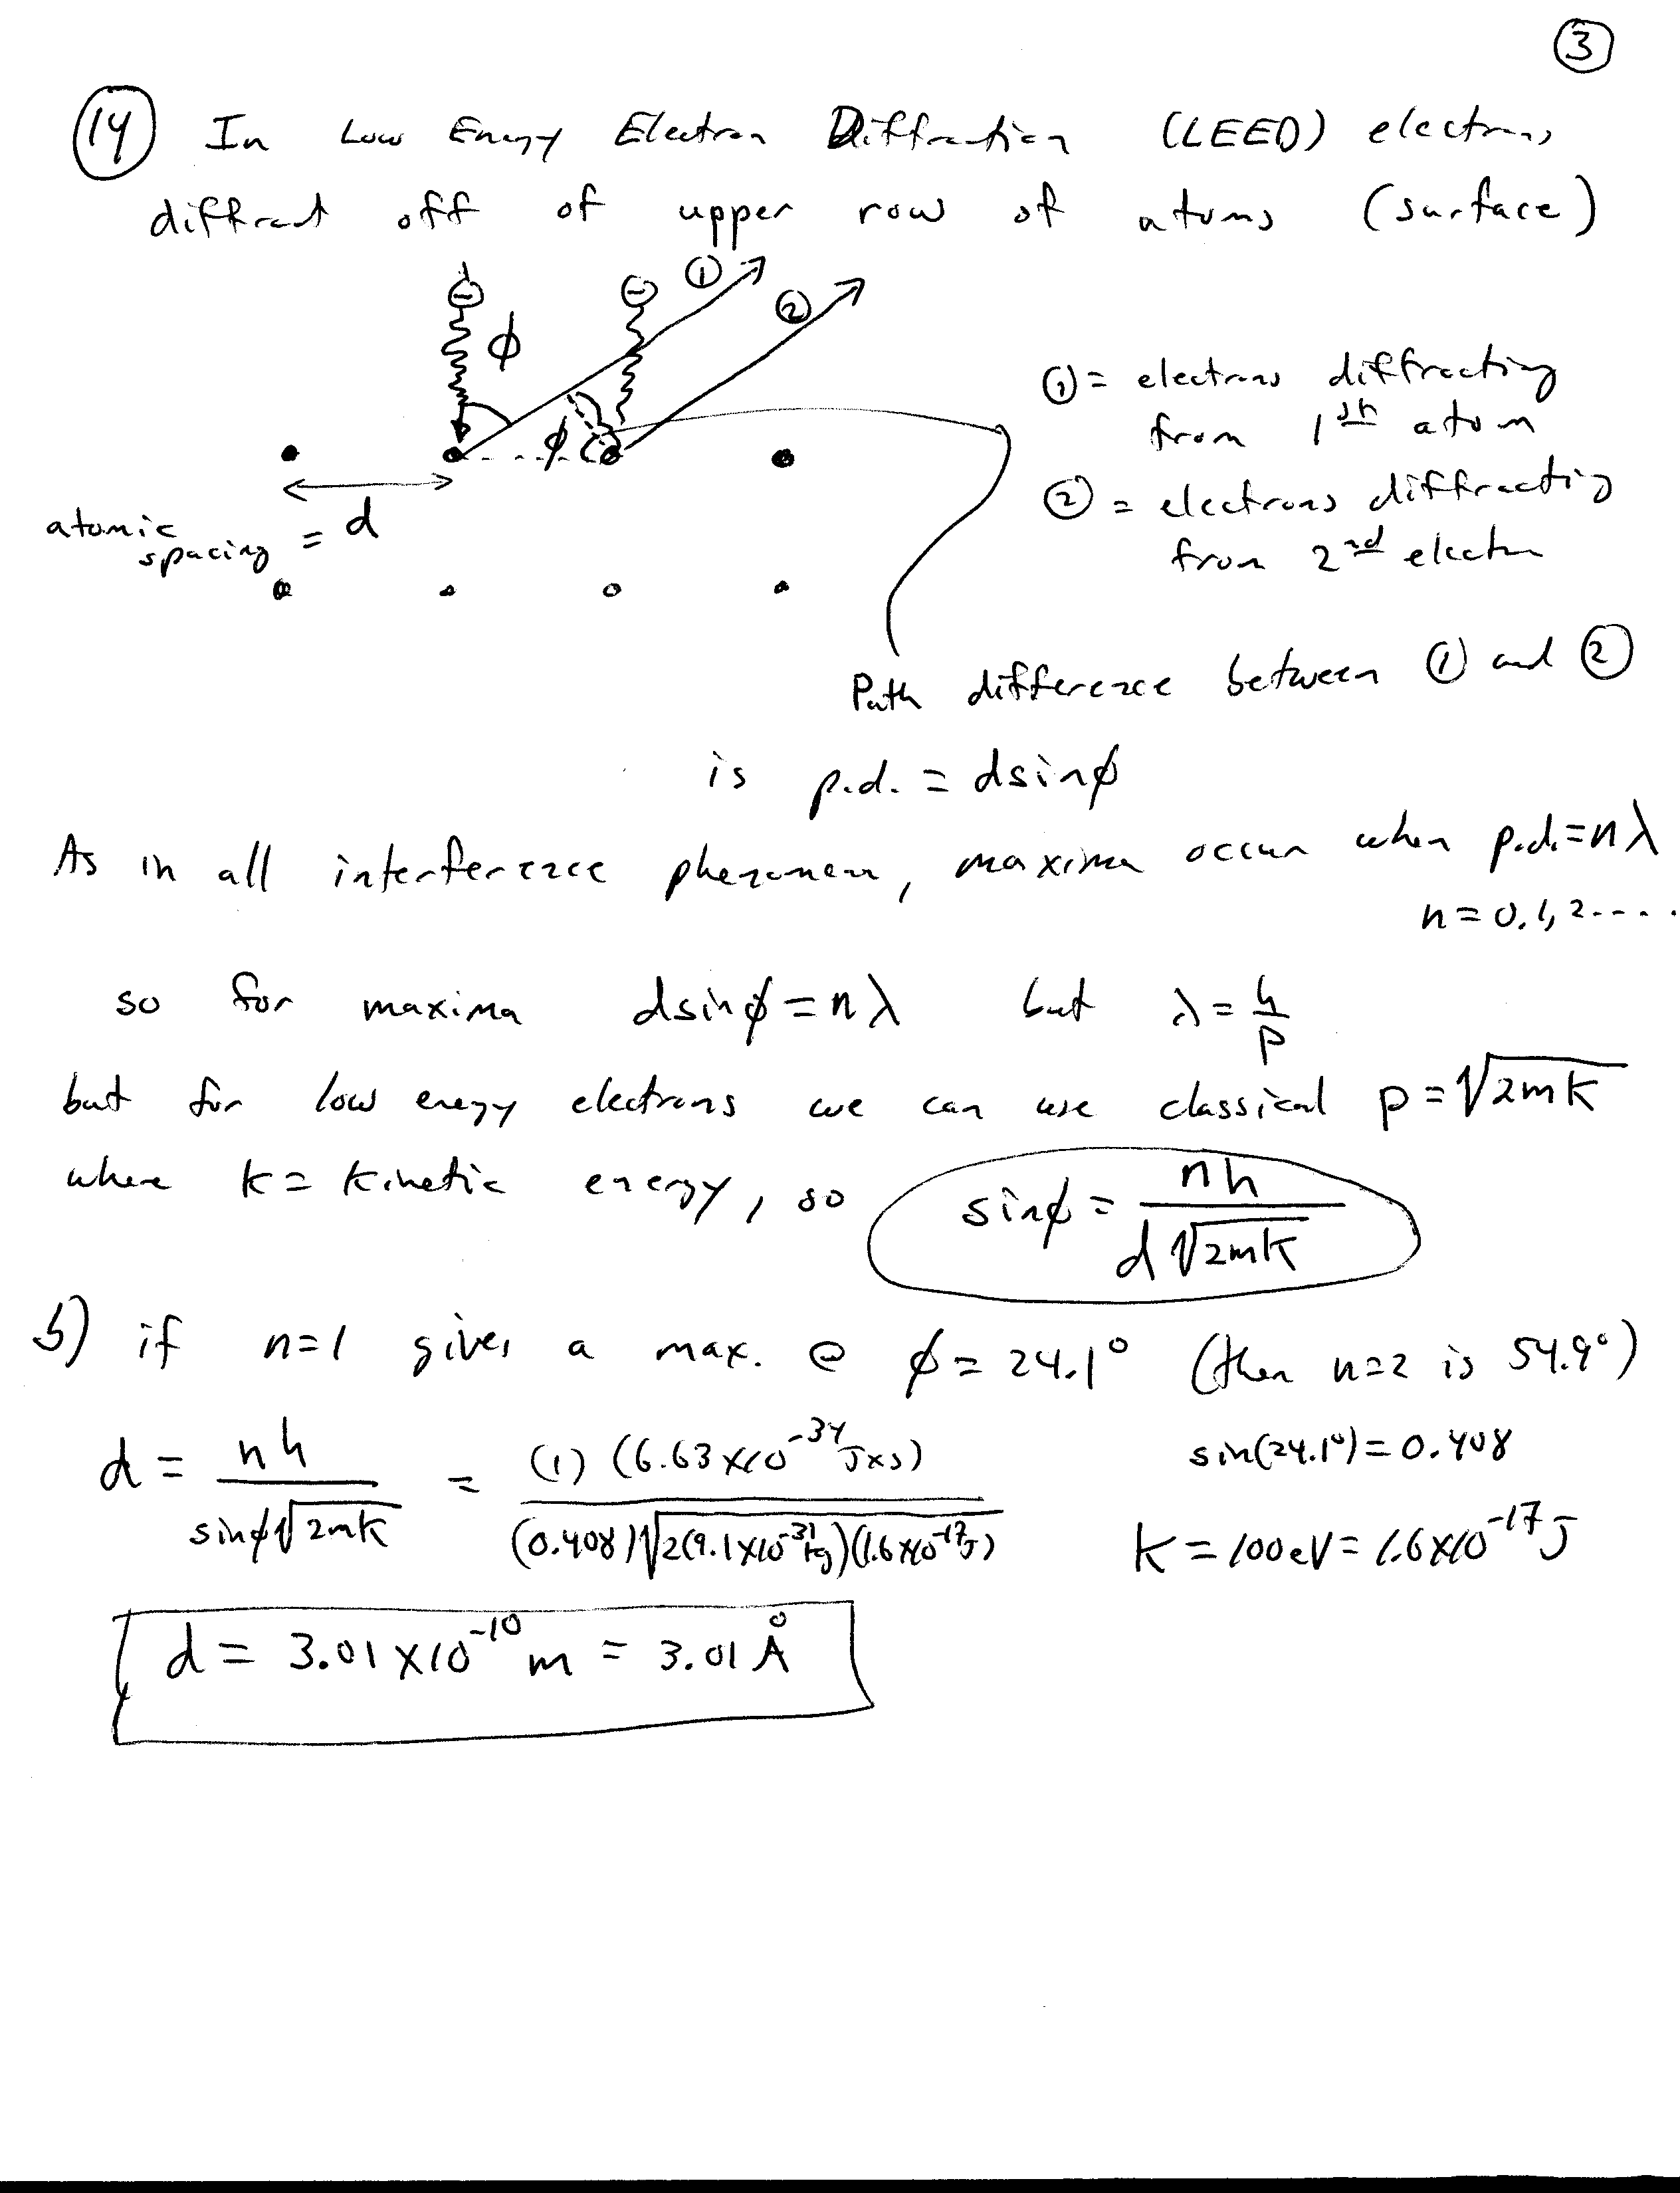 ③
⑭ In Low Energy Electron Diffraction (LEED) electrons
diffract off of upper row of atoms (surface)
① ②
ϕ
ϕ
① = electrons diffracting
from 1st atom
② = electrons diffracting
from 2nd electn
atomic
spacing = d
Path difference between ① and ②
is p.d. = dsinϕ
As in all interference phenomena, maxima occur when p.d.=nλ
n=0,1,2----.
so for maxima dsinϕ=nλ but λ=h/p
but for low energy electrons we can use classical p=√2mK
where K= kinetic energy, so sinϕ = nh/(d√2mK)
b) if n=1 gives a max. @ ϕ=24.1° (then n=2 is 54.9°)
d = nh/(sinϕ√2mK) = (1)(6.63×10^-34 J×s)/((0.408)√2(9.1×10^-31 kg)(1.6×10^-17 J))
sin(24.1°)=0.408
K=100eV=1.6×10^-17 J
d = 3.01×10^-10 m = 3.01 Å